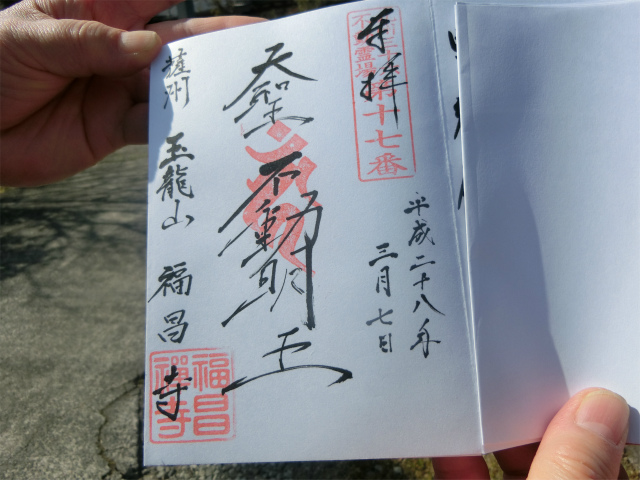 奉拝
霊場
第十七番
平成二十八年
三月七日
天聖不動明王
薩州 玉龍山 福昌寺
福昌
禪寺